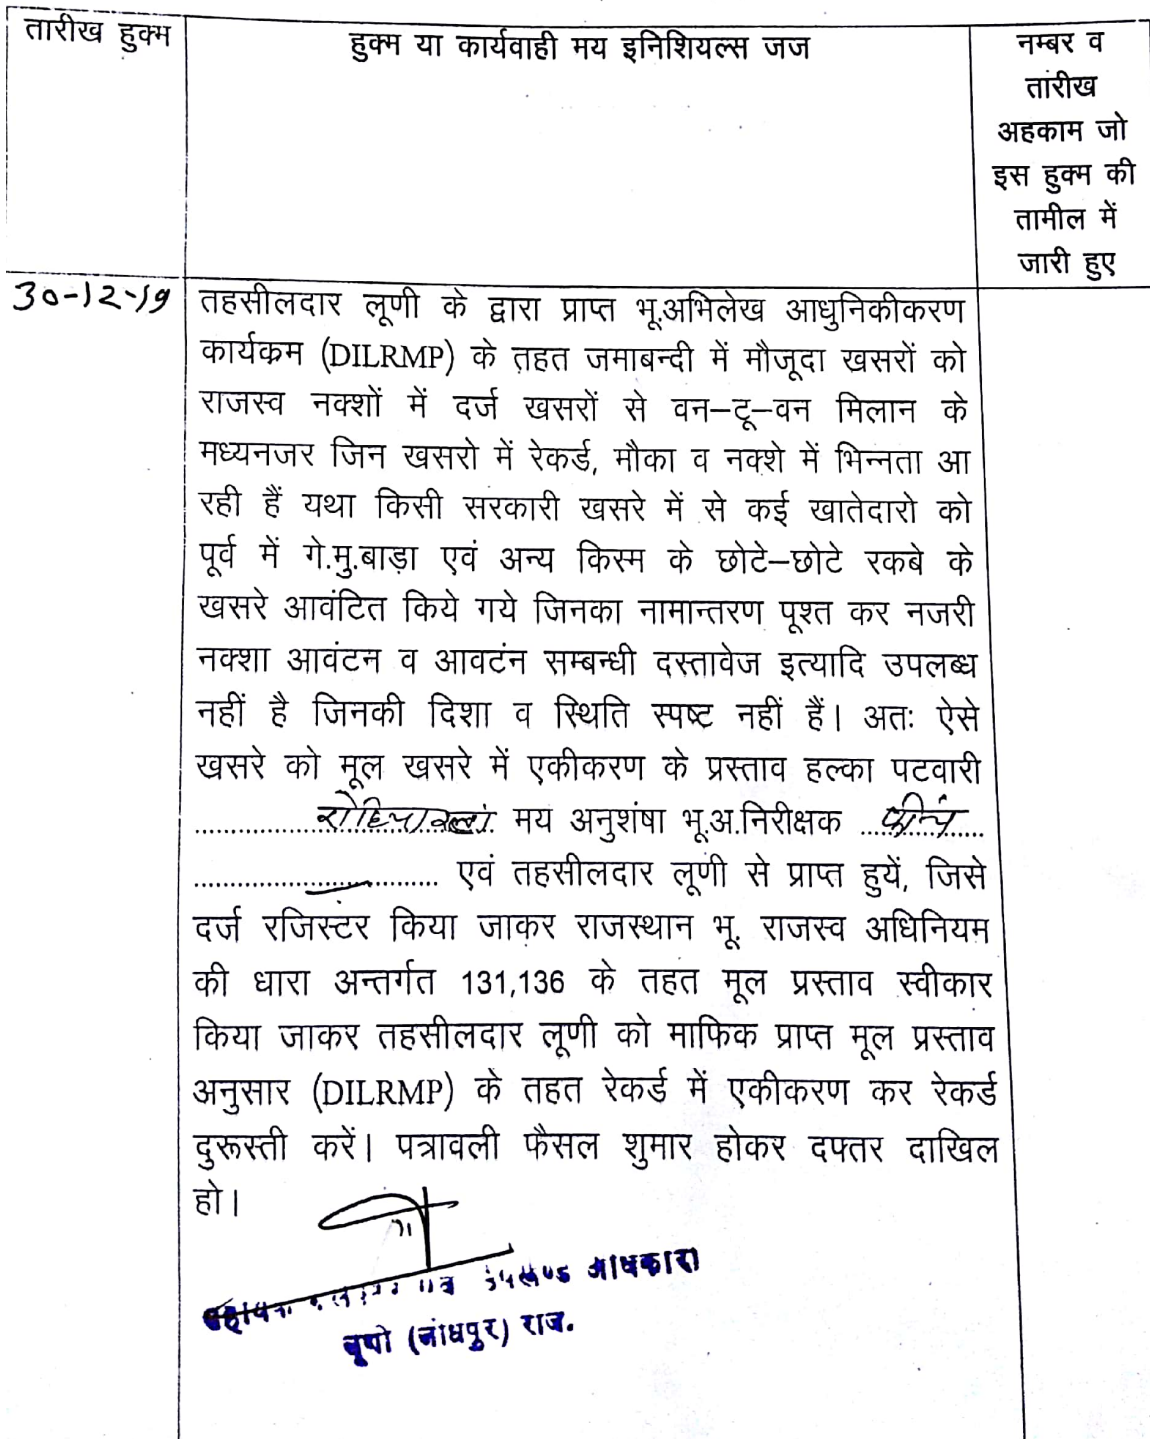 तारीख हुक्म
हुक्म या कार्यवाही मय इनिशियल्स जज
नम्बर व
तारीख
अहकाम जो
इस हुक्म की
तामील में
जारी हुए
30-12-19
तहसीलदार लूणी के द्वारा प्राप्त भू.अभिलेख आधुनिकीकरण
कार्यकम (DILRMP) के तहत जमाबन्दी में मौजूदा खसरों को
राजस्व नक्शों में दर्ज खसरों से वन–टू–वन मिलान के
मध्यनजर जिन खसरो में रेकर्ड, मौका व नक्शे में भिन्नता आ
रही हैं यथा किसी सरकारी खसरे में से कई खातेदारो को
पूर्व में गे.मु.बाड़ा एवं अन्य किस्म के छोटे–छोटे रकबे के
खसरे आवंटित किये गये जिनका नामान्तरण पूश्त कर नजरी
नक्शा आवंटन व आवटंन सम्बन्धी दस्तावेज इत्यादि उपलब्ध
नहीं है जिनकी दिशा व स्थिति स्पष्ट नहीं हैं। अतः ऐसे
खसरे को मूल खसरे में एकीकरण के प्रस्ताव हल्का पटवारी
मय अनुशंषा भू.अ.निरीक्षक
एवं तहसीलदार लूणी से प्राप्त हुयें, जिसे
दर्ज रजिस्टर किया जाकर राजस्थान भू. राजस्व अधिनियम
की धारा अन्तर्गत 131,136 के तहत मूल प्रस्ताव स्वीकार
किया जाकर तहसीलदार लूणी को माफिक प्राप्त मूल प्रस्ताव
अनुसार (DILRMP) के तहत रेकर्ड में एकीकरण कर रेकर्ड
दुरूस्ती करें। पत्रावली फैसल शुमार होकर दफ्तर दाखिल
हो।
लूणी (जोधपुर) राज.